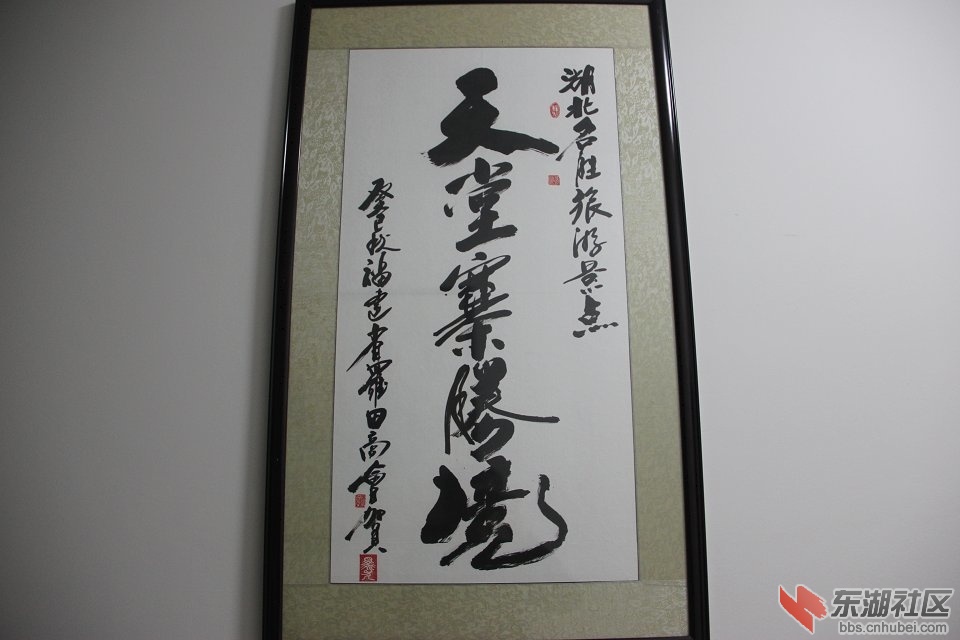 湖北名胜旅游景点
天堂寨勝境
癸巳秋福建省羅田商會賀
东湖社区
bbs.cnhubei.com